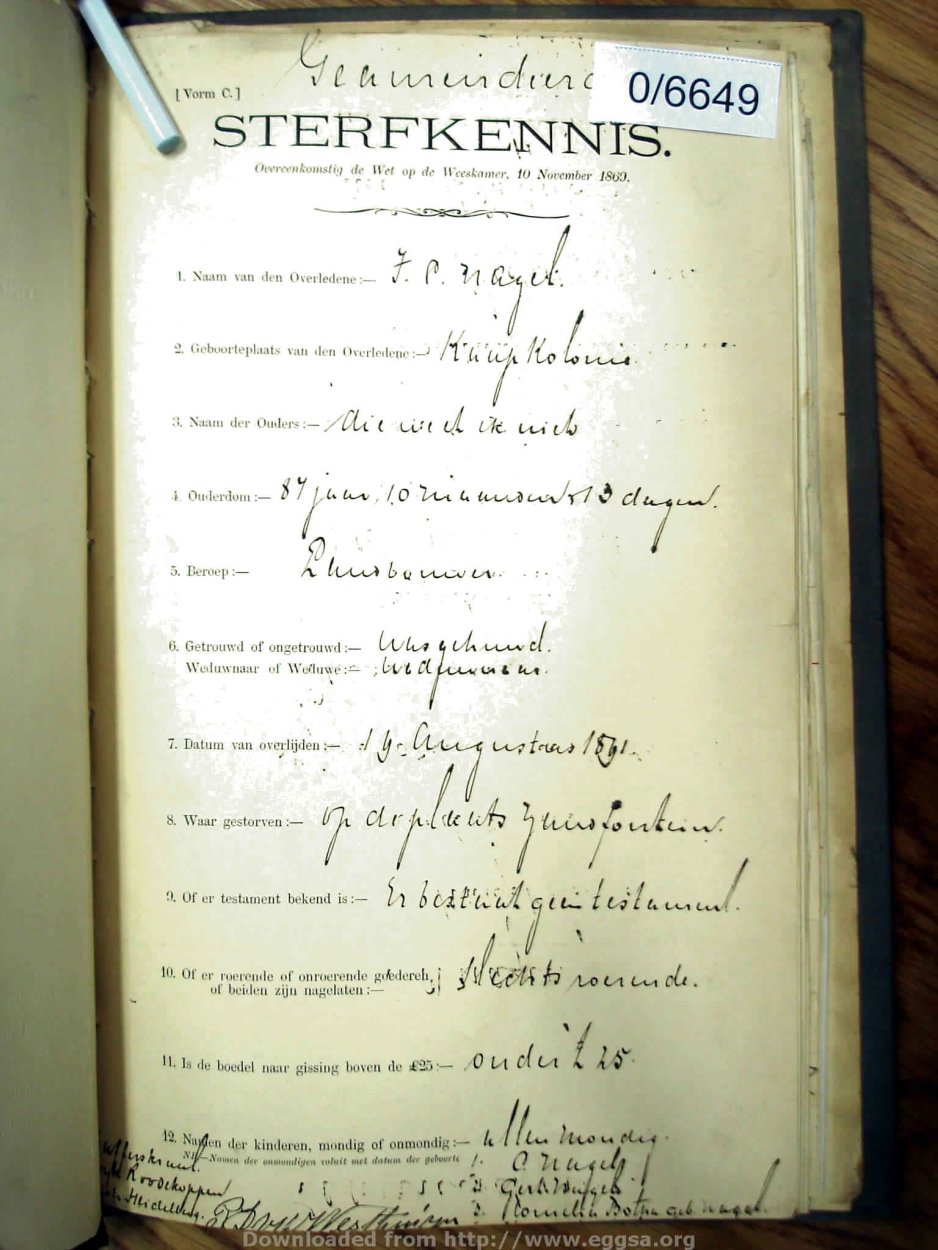 Geamendeerd
0/6649
[Vorm C.]
STERFKENNIS.
Overeenkomstig de Wet op de Weeskamer, 10 November 1869.
1. Naam van den Overledene:— J. P. Nagel.
2. Geboorteplaats van den Overledene:— Kaap Kolonie
3. Naam der Ouders:— die weet ik niet
4. Ouderdom:— 87 jaar, 10 maanden 13 dagen.
5. Beroep:— Landbouwer.
6. Getrouwd of ongetrouwd:— Was gehuwd.
Weduwnaar of Weduwe:— Weduwenaar.
7. Datum van overlijden:— 19 Augustus 1891.
8. Waar gestorven:— op de plaats Zandfontein.
9. Of er testament bekend is:— Er bestaat geen testament.
10. Of er roerende of onroerende goederen, slechts roerende.
of beiden zijn nagelaten:—
11. Is de boedel naar gissing boven de £25:— onder £ 25.
12. Namen der kinderen, mondig of onmondig:— allen mondig.
N.B.—Namen der onmondigen voluit met datum der geboorte 1. C. Nagel
2. Nagel
3. Kornelia Botha geb. Nagel.
Roodekoppen
Heidelberg.
Downloaded from http://www.eggsa.org